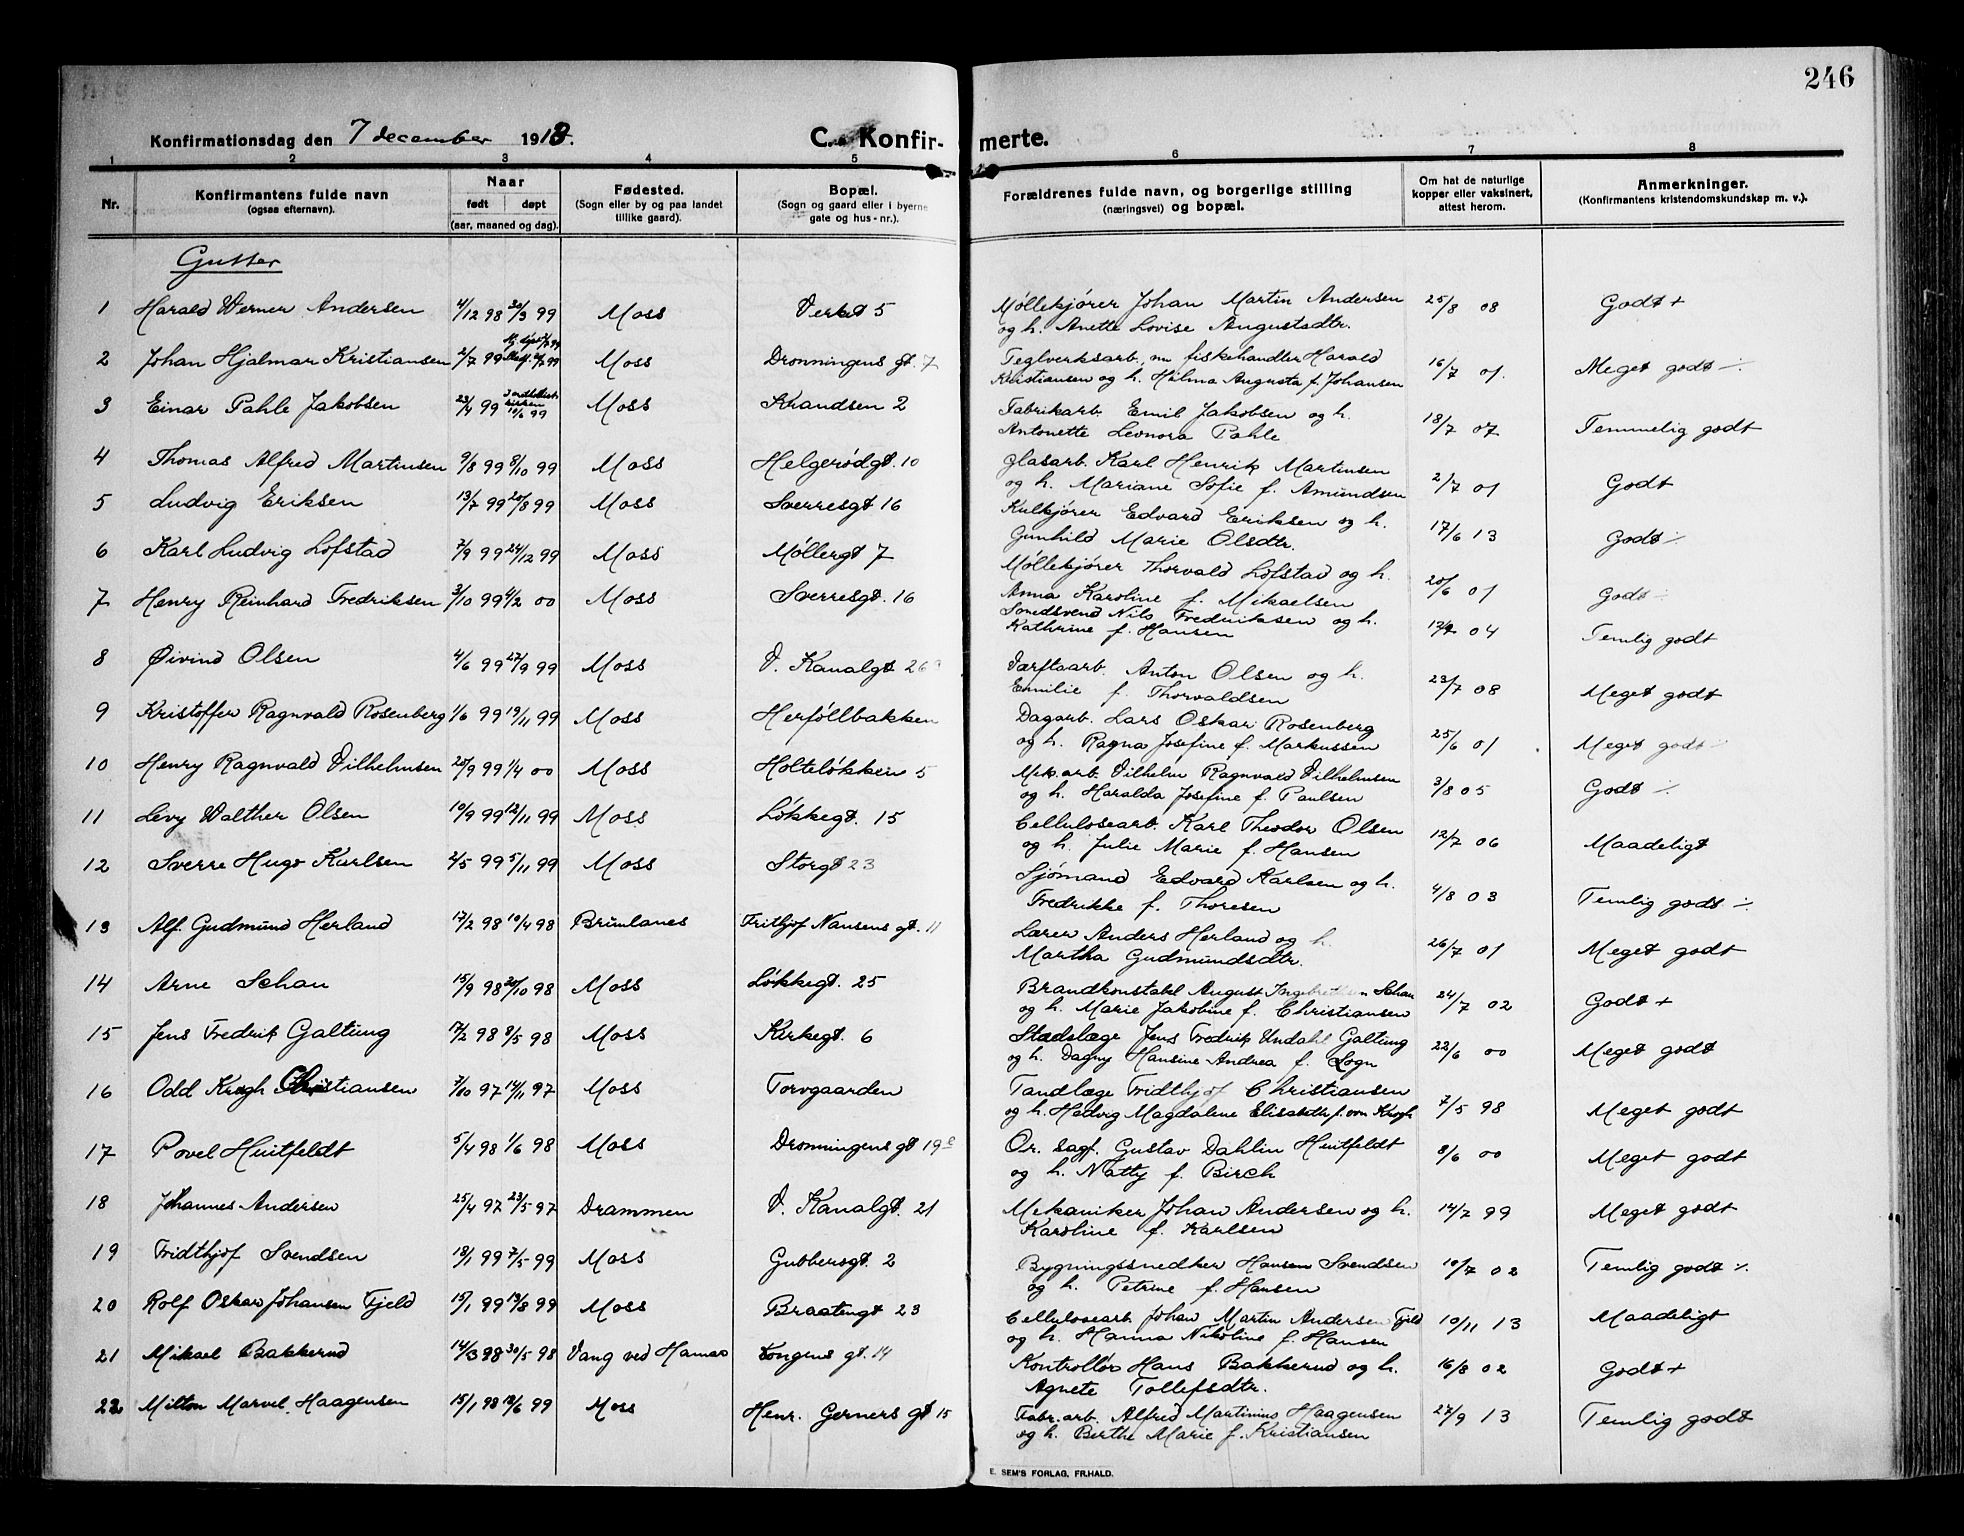 246
Konfirmationsdag den 7 december 1913.
C. Konfirmerte.
1 2 3 4 5 6 7 8
Nr.
Konfirmantens fulde navn
(ogsaa efternavn).
Naar
født døpt
(aar, maaned og dag).
Fødested.
(Sogn eller by og paa landet
tillike gaard).
Bopæl.
(Sogn og gaard eller i byerne
gate og hus-nr.).
Forældrenes fulde navn, og borgerlige stilling
(næringsvei) og bopæl.
Om hat de naturlige
kopper eller vaksinert,
attest herom.
Anmerkninger.
(Konfirmantens kristendomskundskap m. v.).
Gutter
1 Harald Werner Andersen 4/12 98 30/3 99 Moss Verket 5 Møllekjører Johan Martin Andersen 25/8 08 Godt +
og h. Anette Lovise Augustadtr.
2 Johan Hjalmar Kristiansen 2/7 99 Moss Dronningens gt. 7 Teglverksarb., nu fiskehandler Harald 16/7 01. Meget godt ÷
Kristiansen og h. Hilma Augusta f. Johansen
3 Einar Pahle Jakobsen 23/4 99 10/6 99 Moss Krandsen 2 Fabrikarb. Emil Jakobsen og h. 18/7 07 Temmelig godt
Antonette Leonora Pahle
4 Thomas Alfred Martinsen 9/8 99 8/10 99 Moss Helgerødgt. 10 Glasarb. Karl Henrik Martinsen 2/7 01 Godt
og h. Mariane Sofie f. Amundsen
5 Ludvig Eriksen 13/7 99 20/8 99 Moss Sverresgt 16 Kulkjører Edvard Eriksen og h. 17/6 13 Godt ÷
Gunhild Marie Olsdtr.
6 Karl Ludvig Lofstad 7/9 99 24/12 99 Moss Møllergt 7 Møllekjører Thorvald Lofstad og h. 20/6 01 Godt ÷
Anna Karoline f. Mikaelsen
7 Henry Reinhard Fredriksen 3/10 99 4/2 00 Moss Sverresgt. 16 Smedsvend Nils Fredriksen og h. 04 Temlig godt
Kathrine f. Hansen
8 Øivind Olsen 4/6 99 27/9 99 Moss V. Kanalgt 26 Værftsarb. Anton Olsen og h. 23/7 08 Meget godt
Emilie f. Thorvaldsen
9 Kristoffer Ragnvald Rosenberg 1/6 99 19/11 99 Moss Herføllbakken Dagarb. Lars Oskar Rosenberg 25/6 01 Meget godt ÷
og h. Ragna Josefine f. Markussen
10 Henry Ragnvald Vilhelmsen 25/9 99 1/4 00 Moss Holteløkken 5 Mek.arb. Vilhelm Ragnvald Vilhelmsen 3/8 05 Godt ÷
og h. Haralda Josefine f. Paulsen
11 Levy Walther Olsen 10/9 99 12/11 99 Moss Løkkegt. 15 Cellulosearb. Karl Theodor Olsen 12/7 06 Maadeligt
og h. Julie Marie f. Hansen
12 Sverre Hugo Karlsen 2/5 99 5/11 99 Moss Storgt 23 Sjømand Edvard Karlsen og h. 4/8 03 Temlig godt ÷
Fredrikke f. Thoresen
13 Alf Gudmund Herland 17/2 98 10/4 98 Brunlanes Frithjof Nansens gt. 11 Lærer Anders Herland og h. 26/7 01 Meget godt
Martha Gudmundsdtr.
14 Arne Schau 15/9 98 30/10 98 Moss Løkkegt. 25 Brandkonstabl August Ingebretsen Schau 24/7 02 Godt +
og h. Marie Jakobine f. Christiansen
15 Jens Fredrik Galtung 17/2 98 8/5 98 Moss Kirkegt. 6 Stadslæge Jens Fredrik Undahl Galtung 22/6 00 Meget godt
og h. Dagny Hansine Andrea f. Sogn
16 Odd Krogh Christiansen 7/10 97 14/11 97 Moss Torvgaarden Tandlæge Fridthjof Christiansen 7/5 98 Meget godt
og h. Hedvig Magdalene Elisabeth f. von Krogh
17 Povel Huitfeldt 5/4 98 1/6 98 Moss Dronningens gt 19 Or. sagf. Gustav Dahlin Huitfeldt 8/6 00 Meget godt
og h. Natty f. Birch
18 Johannes Andersen 25/4 97 23/5 97 Drammen V. Kanalgt. 21 Mekaniker Johan Andersen og h. 14/7 99 Meget godt
Karoline f. Karlsen
19 Fridthjof Svendsen 18/1 99 7/5 99 Moss Gubberogt 2 Bygningssnedker Hansen Svendsen 10/7 02 Temlig godt ÷
og h. Petrine f. Hansen
20 Rolf Oskar Johansen Fjeld 15/1 99 13/8 99 Moss Braatengt 23 Cellulosearb. Johan Martin Andersen Fjeld 10/11 13 Maadeligt
og h. Hanna Nikoline f. Hansen
21 Mikael Bakkerud 14/3 98 30/5 98 Vang ved Hamar Kongens gt. 14 Kontrollør Hans Bakkerud og h. 16/8 02 Godt +
Agnete Tollefsdtr.
22 Milton Marvel Haagensen 15/1 98 18/6 99 Moss Henr. Gerners gt 15 Fabr.arb. Alfred Martinius Haagensen 27/9 13 Temlig godt
og h. Berthe Marie f. Kristiansen
E. SEM'S FORLAG, FR.HALD.